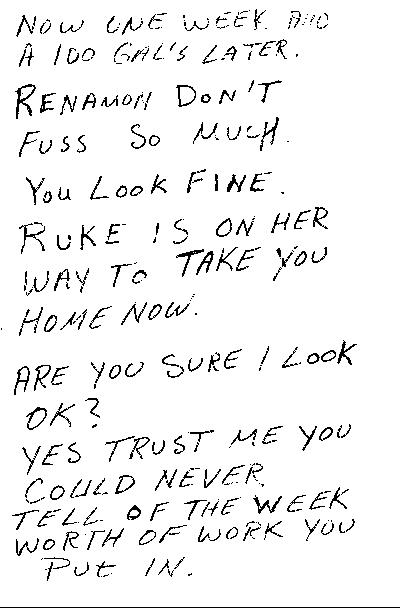 NOW ONE WEEK AND
A 100 GAL'S LATER.
RENAMON DON'T
FUSS SO MUCH.
YOU LOOK FINE.
RUKE IS ON HER
WAY TO TAKE YOU
HOME NOW.
ARE YOU SURE I LOOK
OK?
YES TRUST ME YOU
COULD NEVER
TELL OF THE WEEK
WORTH OF WORK YOU
PUT IN.